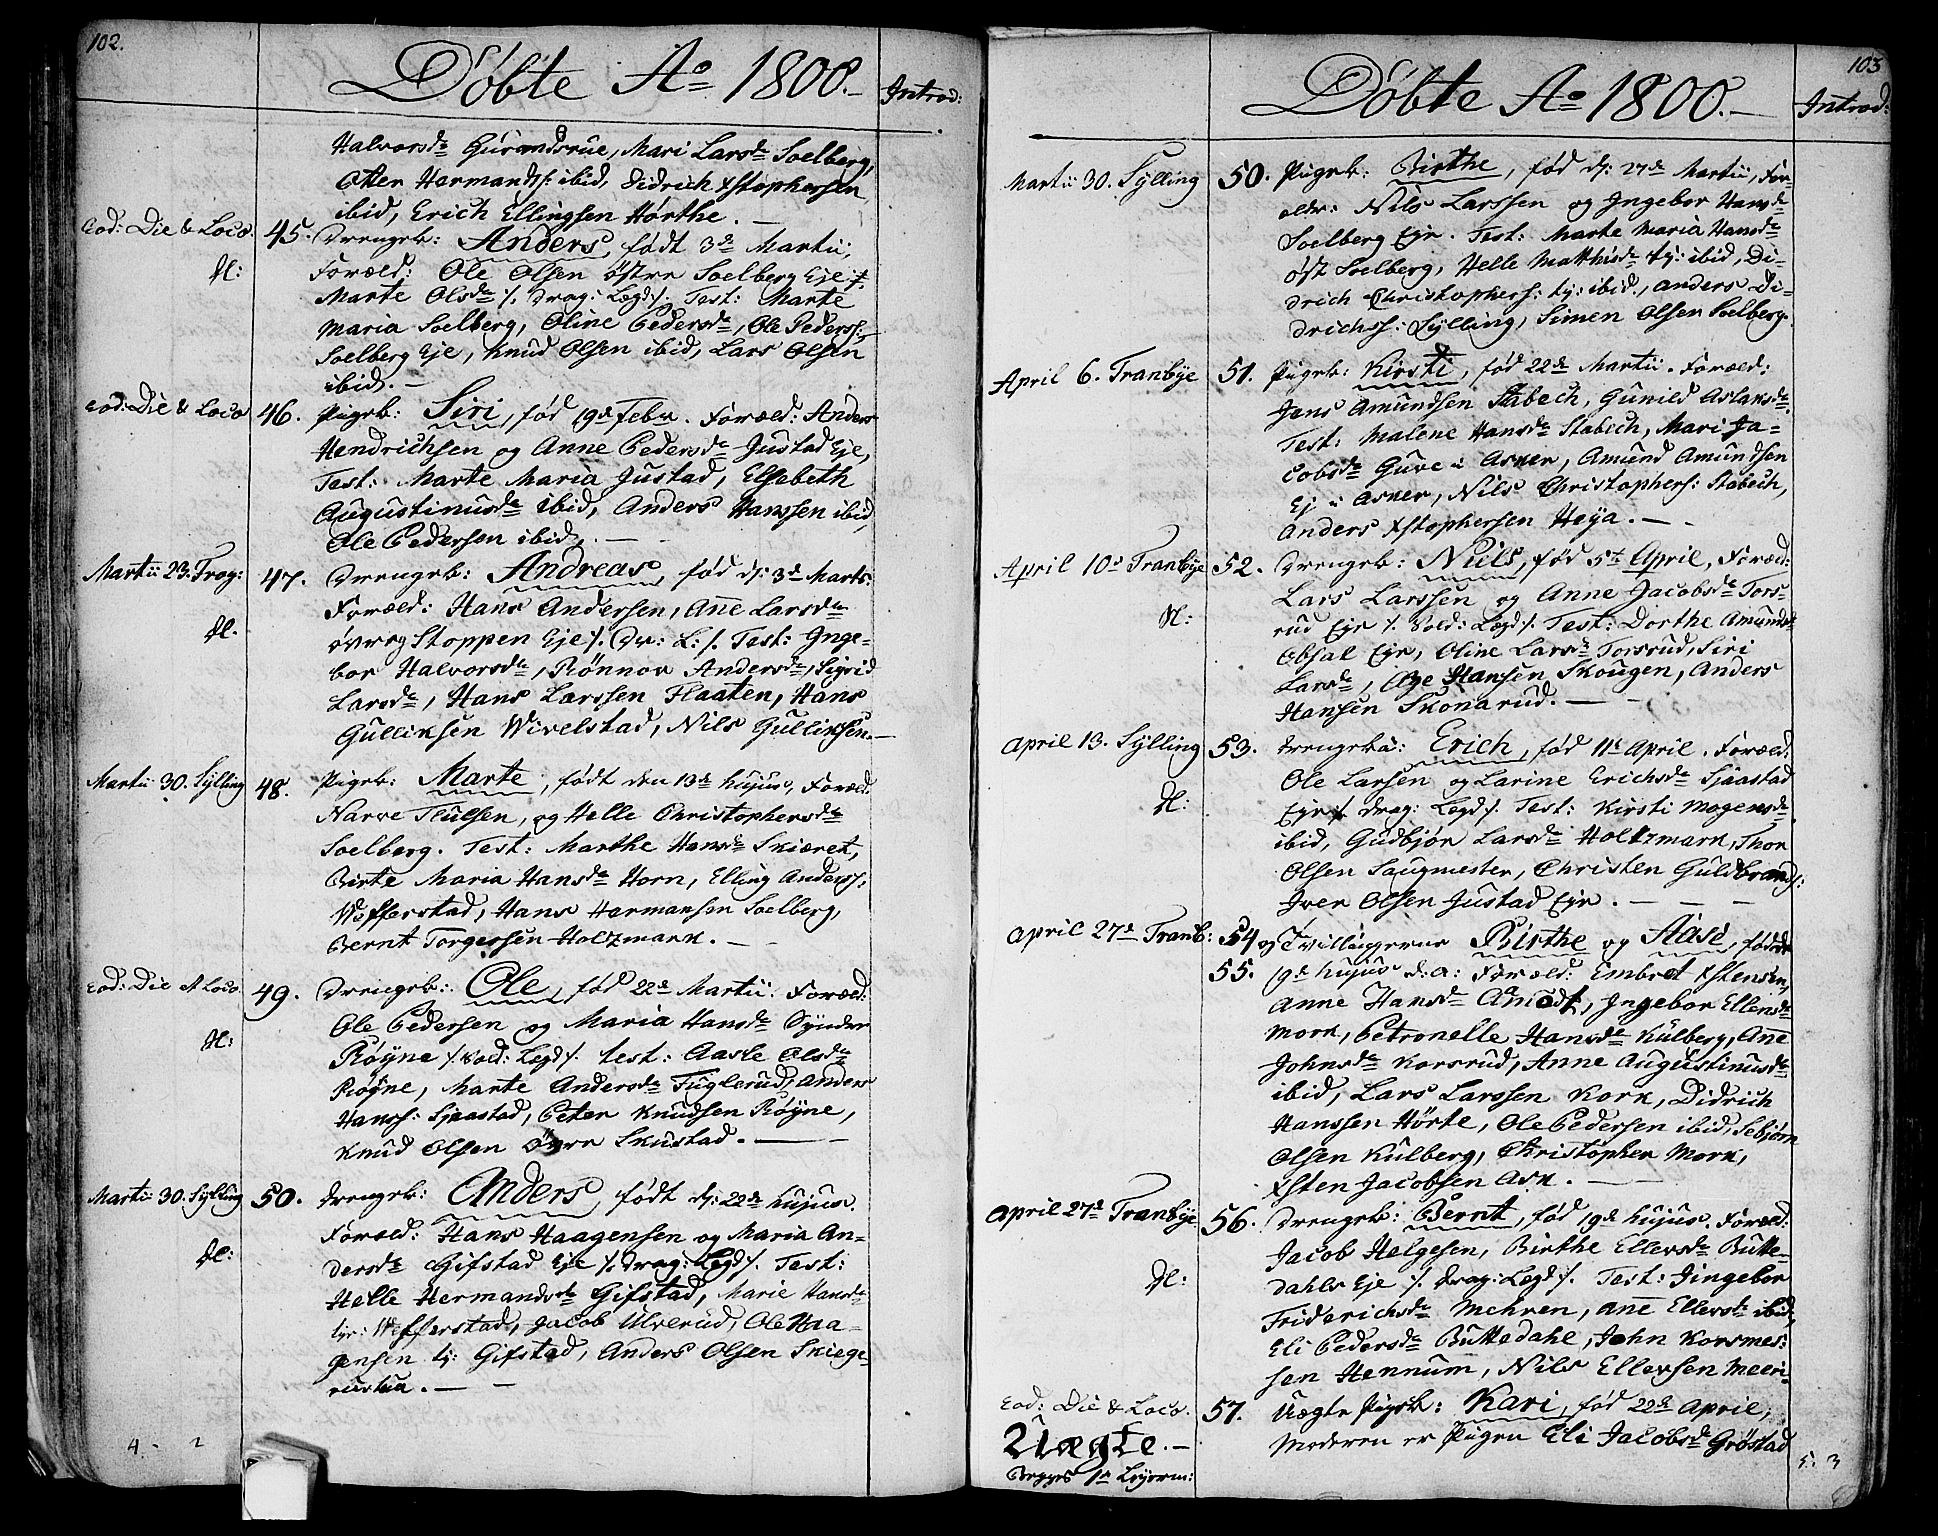 102.
Døbte Aº 1800.
Introd:
Halvorsdr Gurandsrue, Mari Larsdr Soelberg,
Otter Hermands: ibid, Didrich Xstophersen
ibid, Erich Ellingsen Hørthe.
Eod: Die & Loco. 45. Drengeb: Anders, født 3de Martii,
N: Foræld: Ole Olsen østre Soelberg Eje &
Marte Olsdr /. Drag: Lægd /. Test: Marte
Maria Soelberg, Oline Pedersdr, Ole Peders:
Soelberg Eje, Knud Olsen ibid, Lars Olsen
ibid.
Eod: Die & Loco 46. Pigeb: Siri, fød 19de Febr. Foræld: Anders
Hendrichsen og Anne Pedersdr Justad Eje,
Test: Marte Maria Justad, Elsebeth
Augustinusdr ibid, Anders Hanssen ibid,
Ole Pedersen ibid.
Martii 23. Frog: 47. Drengeb: Andreas, fød d: 3de Marts:
N. Foræld: Hans Andersen, Ane Larsdr
øvreg Stoppen Eje /. Dr: L: /. Test: Inge-
bor Halvorsdr, Rönnov Andersdr, Sigrid
Larsdr, Hans Larssen Flaaten, Hans
Gulliksen Wivelstad, Nils Gulliksen.
Martii 30. Sylling 48. Pigeb: Marte, født den 13de hujus, Foræld:
Narve Tlulsen, og Helle Christophersdr
Soelberg. Test: Marthe Hansdr Skiæret,
Birte Maria Hansdr Horn, Elling Anders:
Wefferstad, Hans Hermansen Soelberg,
Bernt Torgersen Holtzmark.
Eod: Die et Loco 49. Drengeb: Ole, fød 22de Martii. Foræld:
N: Ole Pedersen og Maria Hansdr Synder
Røyne /. Sold: Lægd /. Test: Aasle Olsdr
Røyne, Marte Andersdr Fuglerud, Anders
Hanss: Sjaastad, Peter Knudsen Røyne,
Knud Olsen Øvre Skustad.
Martii 30. Sylling 50. Drengeb: Anders, født d: 22de hujus.
N: Foræld: Hans Haagensen og Maria An-
dersdr Gifstad Eje /. Drag: Legd /. Test:
Helle Hermandsdr Gifstad, Marie Hansdr
tje: Wefferstad, Jacob Ulverud, Ole Haa-
gensen tj: Gifstad, Anders Olsen Skiege-
rustua.
4 - 2
103
Døbte Aº 1800.
Introd:
Martii 30. Sylling 50. Pigeb: Birthe, fød d: 27de Martii, For-
ældr: Nils Larssen og Ingebor Hansdr
Soelberg Ejr. Test: Marte Maria Hansdr
øst Soelberg, Helle Matthisdr tj: ibid, Di-
drich Christophers: tj: ibid., Anders Di-
drichss: Sylling, Simen Olsen Soelberg.
April 6. Tranbye 51. Pigeb: Kirsti, fød 22de Martii. Foræld:
Jans Amundsen Stabech, Gunild Aslaksdr.
Test: Malene Hansdr Stabech, Mari Ja-
cobsdr Guve i Asker, Amund Amundsen
Ej i Asker, Nils Christophers: Stabech,
Anders Xstophersen Heya.
April 10de Tranbye 52. Drengeb: Niels, fød 5te April, Foræld:
N: Lars Larssen og Anne Jacobsdr Tors-
rud Ejr /. Sold: Lægd /. Test: Dorthe Amundsdr
Obsal Ejr, Oline Larsdr Torsrud, Siri
Larsdr, Aze Hansen Skougen, Anders
Hansen Skonarud.
April 13. Sylling 53. Drengeba: Erich, fød 11te April. Foræld:
N: Ole Larsen og Larine Erichsdr Sjaastad
Ejr /. Drag: Legd /. Test: Kirsti Mogensdr
ibid, Gudbjør Larsdr Holtzmark, Thor
Olsen Saugmester, Christen Guldbrands:
Iver Olsen Justad Ejr.
April 27de Tranb: 54 og Tvillingerne Birthe og Aase, fødde
55. 19de hujus d: a: Foræld: Embret Xstensen,
Anne Hansdr Amodt, Ingebor Ellensdr
Mork, Petronelle Hansdr Kulberg, Ane
Johnsdr Korsrud, Anne Augustinusdr
ibid, Lars Larssen Kork, Didrich
Hanssen Hörte, Ole Pedersen ibid, Sebjørn
Olsen Kulberg, Christopher Mork,
Xsten Jacobsen Ask.
April 27de Tranbye 56. Drengeb: Bernt, fød 19de hujus. Foræld:
N: Jacob Helgesen, Birthe Ellersdr Butte-
dahls Eje /. Drag: Legd /. Test: Jingebor
Friderichsdr Mehren, Ane Ellersdr ibid,
Eli Pedersdr Buttedahl, John Korsmes:
sen Hennum, Nils Ellersen Meeri-
Eod: Die & Loco. 57. Uægte Pigeb: Kari, fød 22de April,
Uægte. Moderen er Pigen Eli Jacobsdr Grøstad
Begges 1te Lejerm:
5. 3